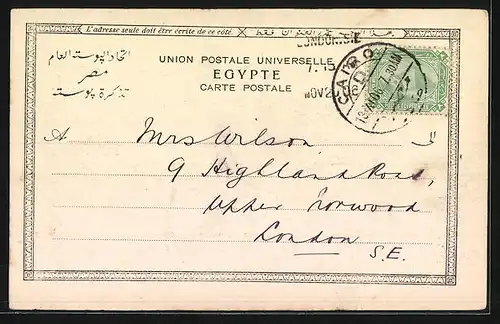 L'adresse seule doit être écrite de ce côté.
LONDON. S.E
اتحاد البوستة العام
UNION POSTALE UNIVERSELLE
7.15
مصر
EGYPTE
تذكرة بوستة
CARTE POSTALE
NOV 2
CAIRO
D
7.30 AM
A
الى
Mrs Wilson
9 Highland Road,
Upper Norwood
London
S.E.